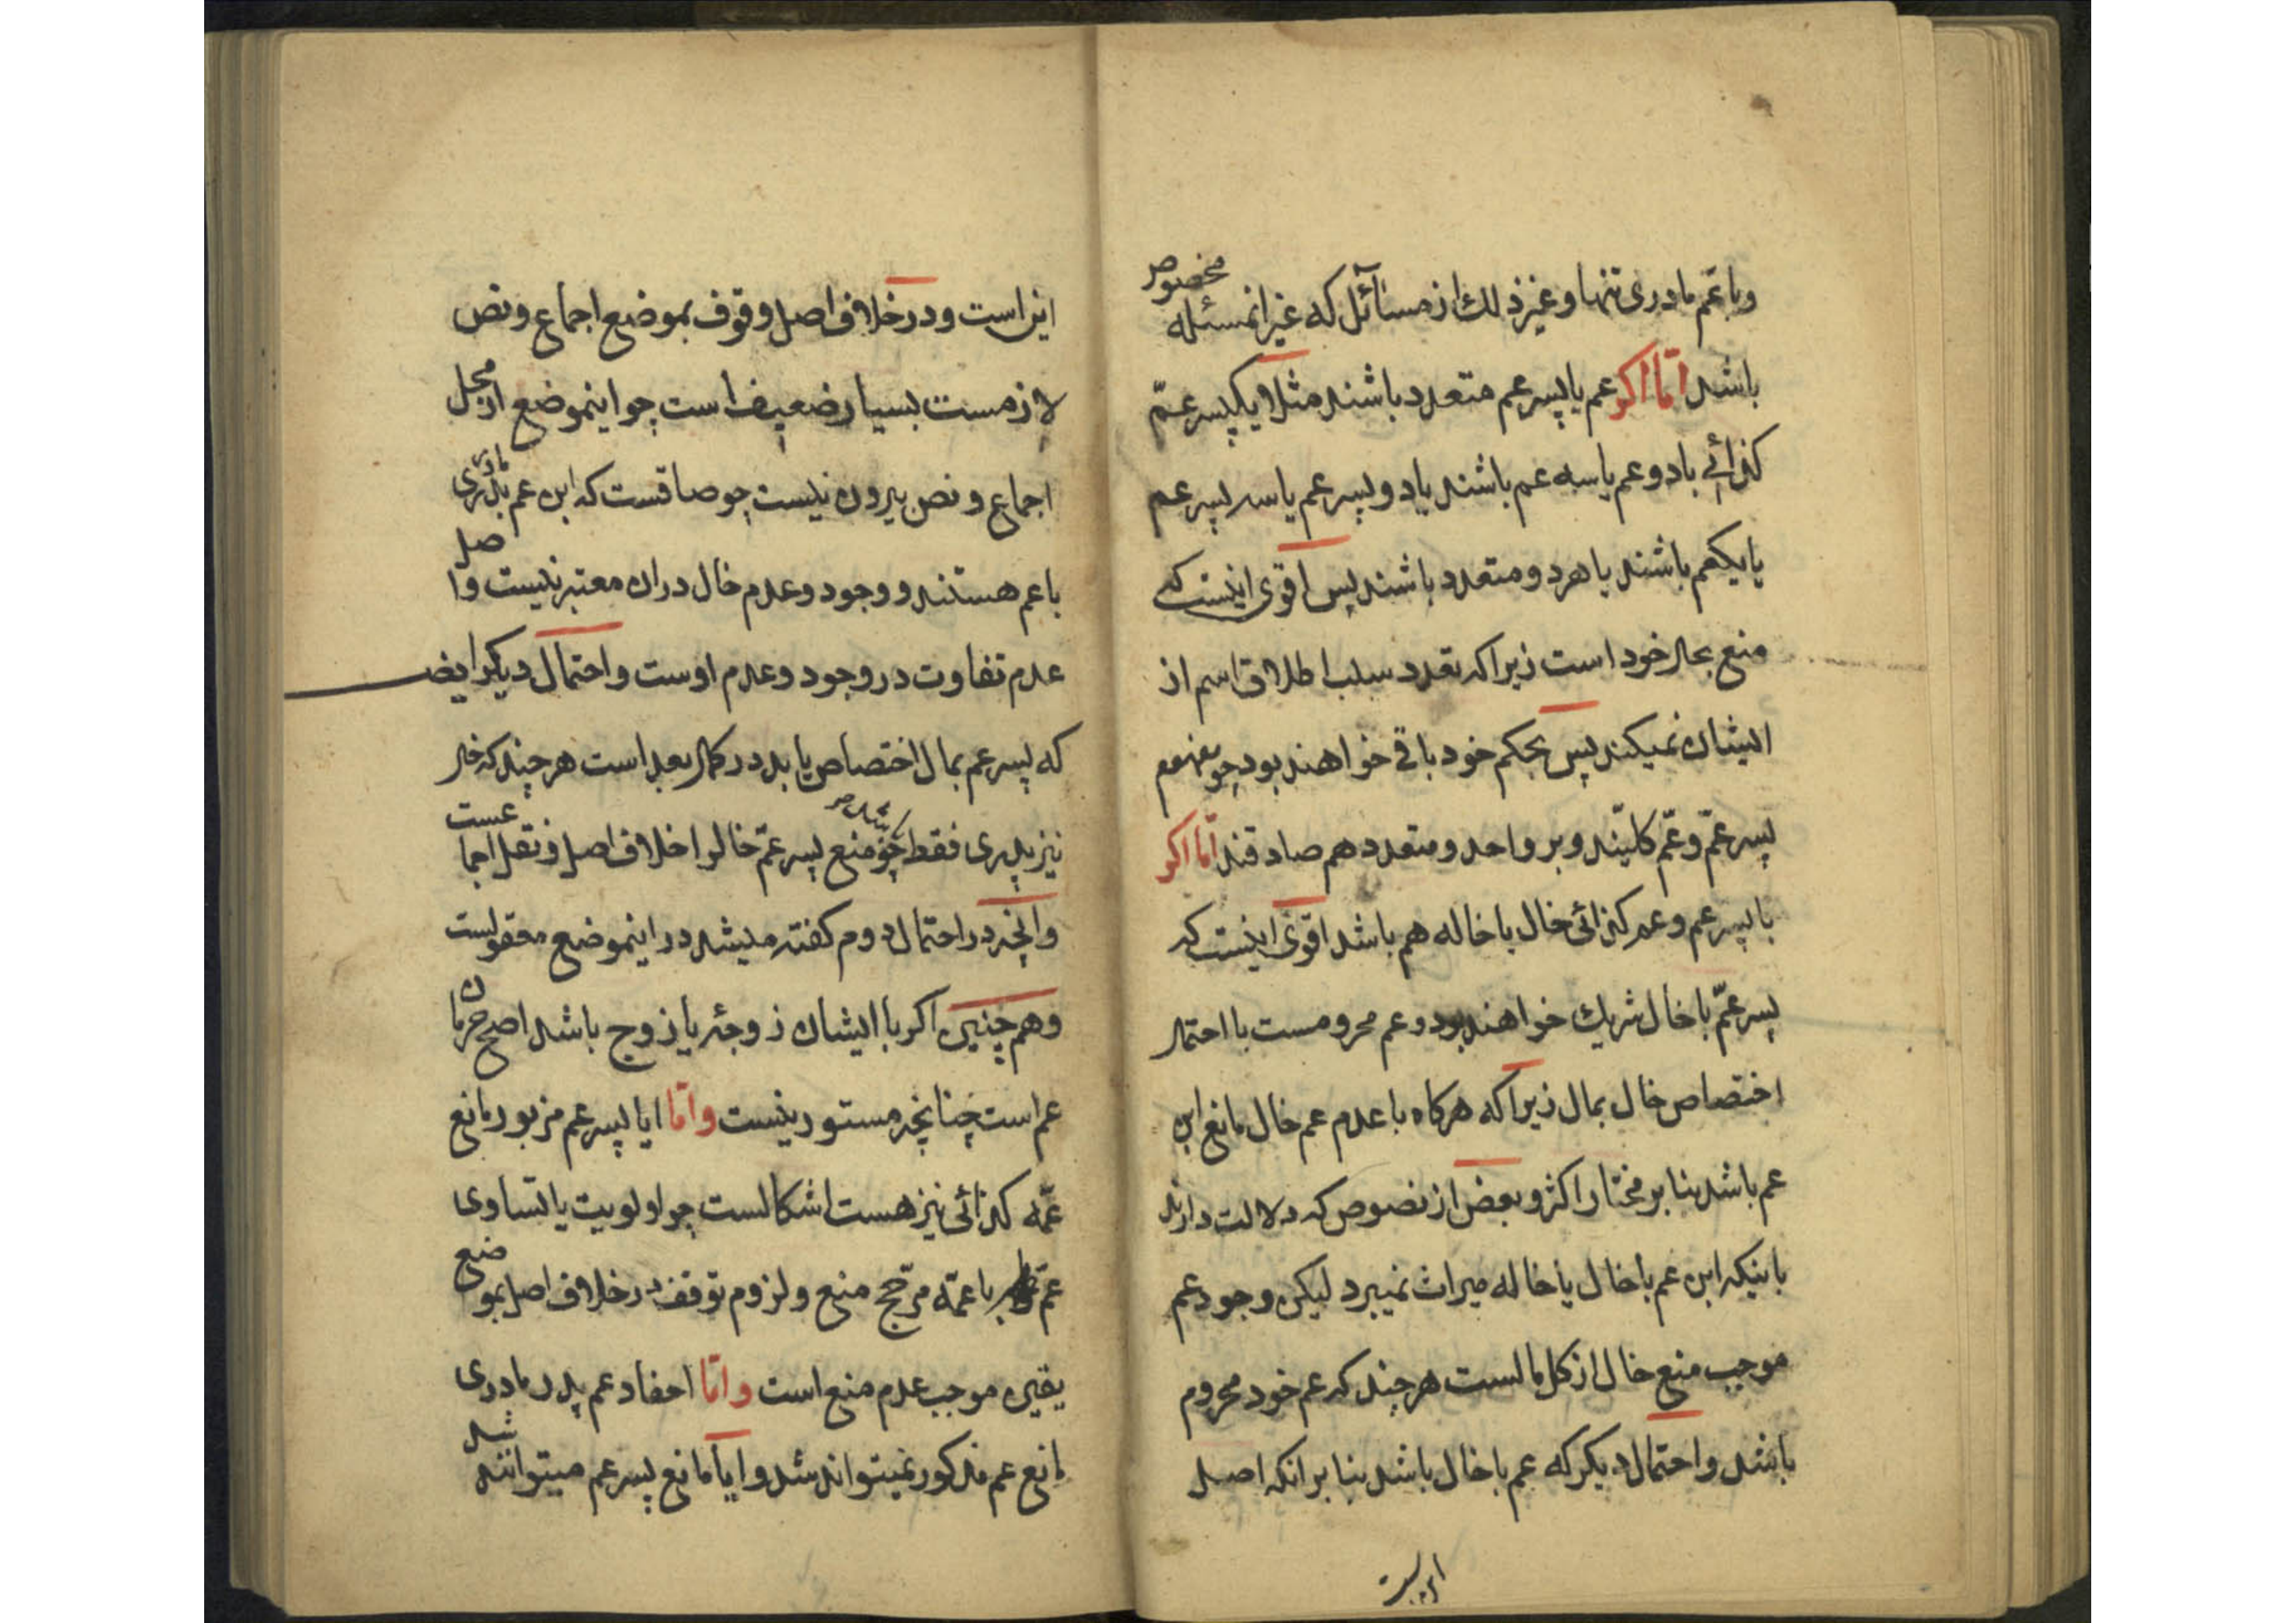 وبا عّم مادری تنها و غیر ذلك از مسائل كه غیر انمسئله مخصوص
باشد امّا اكر عم یا پسر عم متعدد باشند مثلا یكپسر عمّ
كذائی با دو عم یا سه عم باشند یا دو پسر عم یا سه پسر عم
با یكعم باشند یا هر دو متعدد باشند پس اقوی اینست كه
منع بحال خود است زیرا كه تعدد سلب اطلاق اسم از
ایشان نمیكند پس بحكم خود باقی خواهند بود چو مفهوم
پسر عمّ و عّم كلیّند و بر واحد و متعدد هم صادقند امّا اكر
با پسر عم و عم كذائی خال یا خاله هم باشد اقوی اینست كه
پسر عمّ با خال شریك خواهند بود و عم محرومست با احتمال
اختصاص خال بمال زیرا كه هركاه با عدم عم خال مانع ابن
عم باشد بنا بر مختار اكثر و بعض از نصوص كه دلالت دارند
باینكه ابن عم با خال یا خاله میراث نمیبرد لیكن وجود عم
موجب منع خال از كل مالست هر چند كه عم خود محروم
باشد و احتمال دیكر كه عم با خال باشد بنا بر انكه اصل
این است و در خلاف اصل وقوف بموضع اجماع و نص
لازمست بسیار ضعیف است چو اینموضع از محل
اجماع و نص بیرون نیست چو صادقست كه ابن عم پدری مادری
با عم هستند و وجود و عدم خال در ان معتبر نیست و اصل
عدم تفاوت در وجود و عدم اوست و احتمال دیكر ایضـ
كه پسر عم بمال اختصاص یابد در كمال بعد است هر چند كه خال
نیز پدری فقط باشد چو منع پسر عمّ خال را خلاف اصل و نقل اجماعست
و انچه در احتمال دوم كفته میشد در اینموضع معقولست
و هم چنین اكر با ایشان زوجه یا زوج باشد اصح حرمان
عم است چنانچه مستور نیست و امّا ایا پسر عم مزبور مانع
عمّه كذائی نیز هست اشكالست چو اولویت یا تساوی
عمّ با عمّه مرجّح منع و لزوم توقف در خلاف اصل بموضع
یقین موجب عدم منع است و امّا احفاد عم پدر مادری
مانع عم مذكور نمیتواند شد و ایا مانع پسر عم میتوانند شد